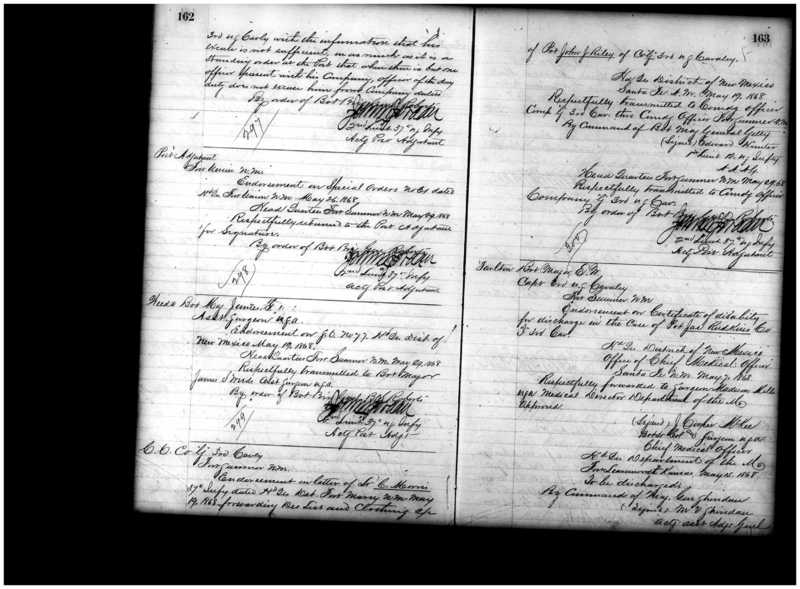 162
3rd U.S. Cavly with the information that his
excuse is not sufficient, in as much as it is a
standing order at the Post that when there is but one
officer present with his Company, officer of the day
duty does not excuse him from Company duties
By order of Bvt Brig
2nd Lieut 37" U.S. Infty
Actg Post Adjutant
297
Post Adjutant
Fort Sumner N.M.
Endorsement on Special Orders No 61 dated
Hd Qrs Fort Sumner N.M. May 26. 1868.
Head Quarters Fort Sumner N.M. May 29. 1868
Respectfully returned to the Post Adjutant
for Signature.
By order of Bvt Brig Gen Roberts
2nd Lieut 37" U.S. Infty
Actg Post Adjutant
298
Bvt Maj James
Asst Surgeon U.S.A.
Endorsement on G.O. No 77. Hd Qrs Dist of
New Mexico May 19. 1868.
Head Quarters Fort Sumner N.M. May 29. 1868
Respectfully transmitted to Bvt Major
James Asst Surgeon U.S.A.
By order of Bvt Brig Roberts
2nd Lieut 37" U.S. Infty
Actg Post Adjt
299
C.O. Co "I" 3rd Cavly
Fort Sumner N.M.
Endorsement on letter of Lt C.
37" Infty dated Hd Qrs Det Fort N.M. May
19. 1868. forwarding Des List and Clothing
163
of Pvt John J Riley of Co "I" 3rd U.S. Cavalry.
Hd Qrs District of New Mexico
Santa Fe N.M. May 19. 1868
Respectfully transmitted to Comdg Officer
Comp "I" 3rd Cav. thro Comdg Officer Fort Sumner N.M.
By Command of Bvt Maj General Getty
(Signed) Edward Hunter
1st Lieut 12. U.S. Infty
A.A.A.G.
Head Quarters Fort Sumner N.M. May 29. 68
Respectfully transmitted to Comdg Officer
Company "I" 3rd U.S. Cav.
By order of Bvt Brig
2nd Lieut 37" U.S. Infty
Actg Post Adjutant
300
Bvt Major
Capt 3rd U.S. Cavalry
Fort Sumner N.M.
Endorsement on Certificate of disability
for discharge in the Case of Pvt Co
"I" 3rd Cav.
Hd Qrs District of New Mexico
Office of Chief Medical Officer
Santa Fe N.M. May 7. 1868
Respectfully forwarded to Surgeon Madison Mills
U.S.A. Medical Director Department of the Mo
approved.
(Signed) J Cooper McKee
Surgeon U.S.A.
Chief Medical Officer
Hd Qrs Department of the Mo
Fort Leavenworth Kansas, May 15. 1868.
To be discharged.
By Command of Maj. Gen Sheridan
(Signed) M V Sheridan
Actg Asst Adjt Genl